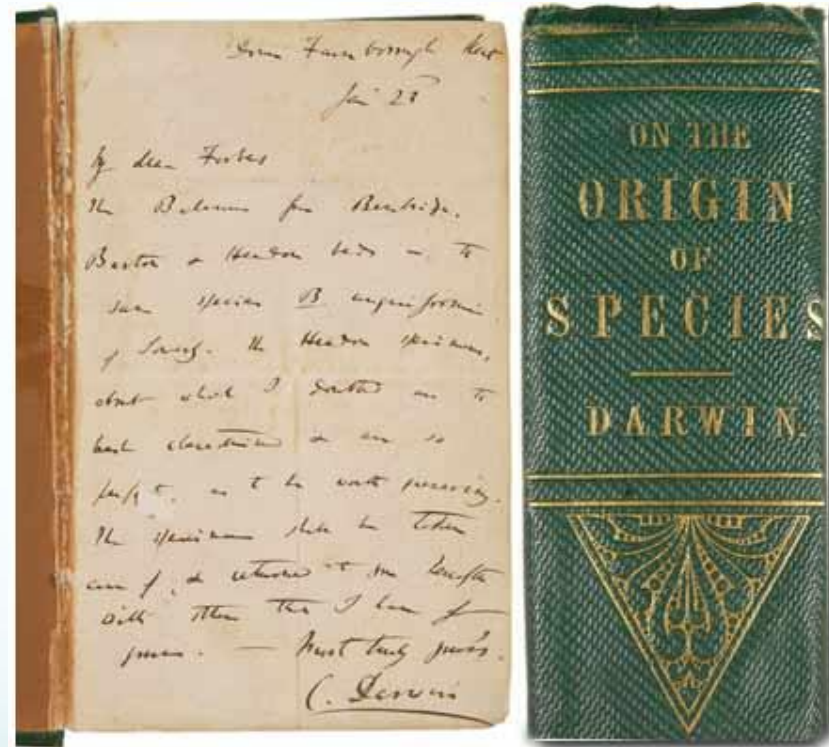 Down Farnborough Kent
Jan 28
My dear Forbes
The Balanus from Bembridge,
Barton & Headon beds are the
same species B. unguiformis
of Sowerby. The Headon specimens,
about which I doubted are the
best characterised & are so
perfect, as to be worth preserving.
The specimens shall be taken
care of, & returned at some length
with others that I have of
yours. — Most truly yours.
C. Darwin
ON THE
ORIGIN
OF
SPECIES
DARWIN.